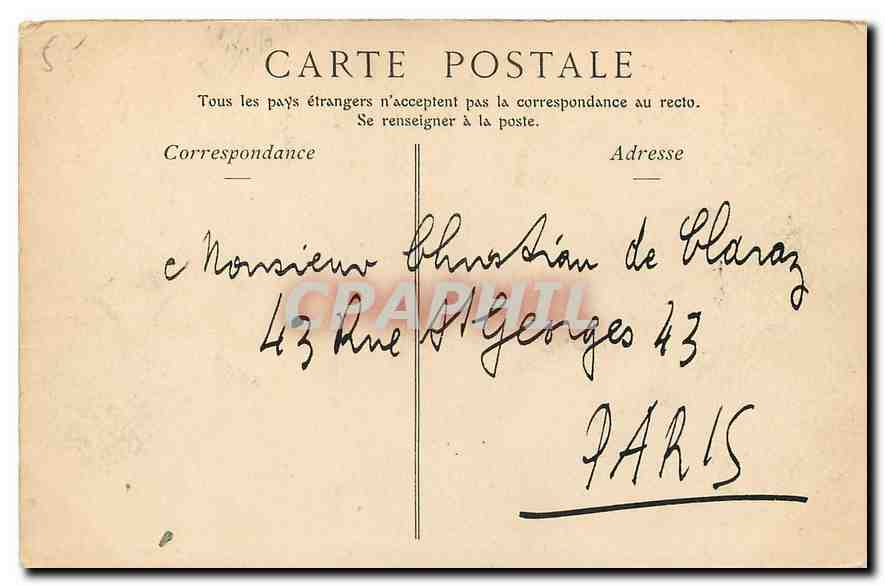 CARTE POSTALE
Tous les pays étrangers n'acceptent pas la correspondance au recto.
Se renseigner à la poste.
Correspondance
Adresse
Monsieur Christian de Claraz
CPAPHIL
43 Rue St Georges 43
PARIS